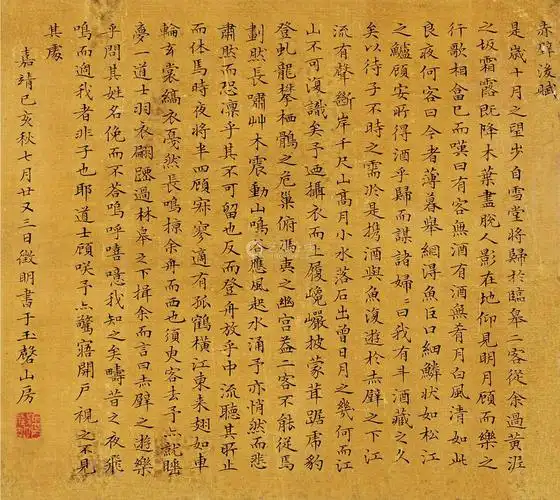 赤壁後賦
是歲十月之望步自雪堂將歸於臨皋二客從余過黃泥
之坂霜露既降木葉盡脫人影在地仰見明月顧而樂之
行歌相畣已而嘆曰有客無酒有酒無肴月白風清如此
良夜何客曰今者薄暮舉網淂魚巨口細鱗狀如松江
之鱸顧安所得酒乎歸而謀諸婦婦曰我有斗酒藏之久
矣以待子不時之需於是携酒與魚復遊於赤壁之下江
流有聲斷岸千尺山高月小水落石出曾日月之幾何而江
山不可復識矣予迺攝衣而上履巉巖披蒙茸踞虎豹
登虬龍攀栖鶻之危巢俯馮夷之幽宮葢二客不能從焉
劃然長嘯艸木震動山鳴谷應風起水涌予亦悄然而悲
肅然而恐凜乎其不可留也反而登舟放乎中流聽其所止
而休焉時夜將半四顧寂寥適有孤鶴橫江東来翅如車
輪玄裳縞衣戛然長鳴掠余舟而西也須臾客去予亦就睡
夢一道士羽衣翩躚過林皋之下揖余而言曰赤壁之遊樂
乎問其姓名俛而不荅嗚呼嘻噫我知之矣疇昔之夜飛
鳴而過我者非子也耶道士顧咲予亦驚寤開戶視之不見
其處
嘉靖己亥秋七月廿又三日徵明書于玉磬山房